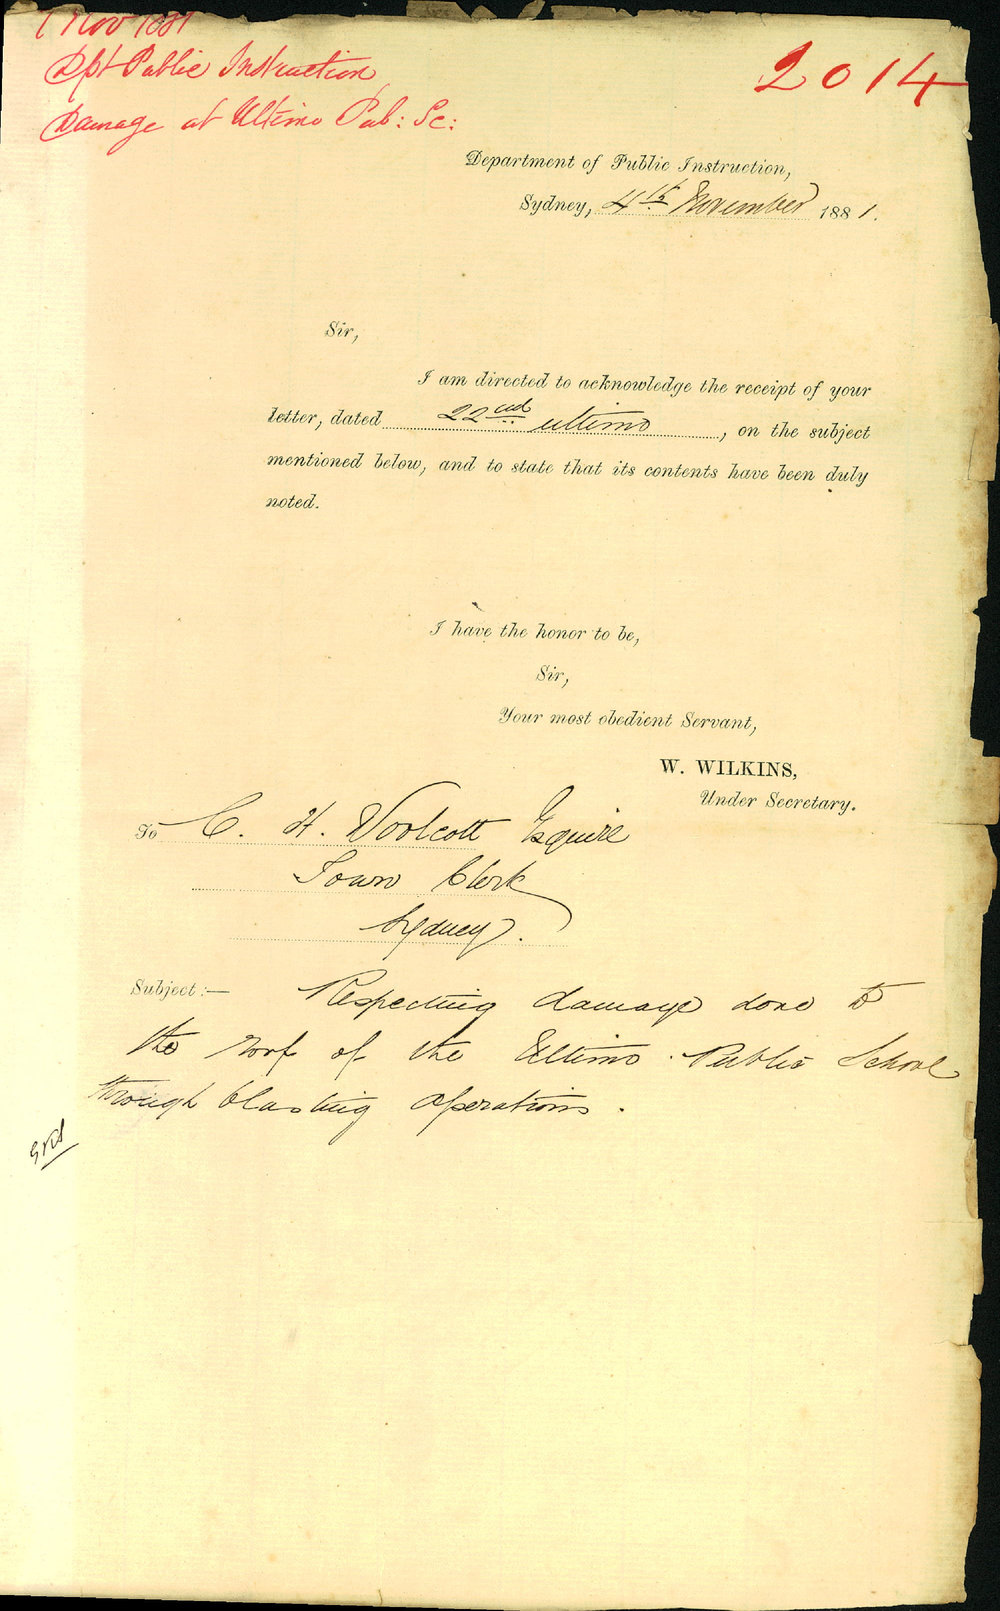 Nov 1881
Dpt Public Instruction
Damage at Ultimo Pub: Sc:
2014
Department of Public Instruction,
Sydney, 4th November 1881.
Sir,
I am directed to acknowledge the receipt of your
letter, dated 22nd ultimo, on the subject
mentioned below, and to state that its contents have been duly
noted.
I have the honor to be,
Sir,
Your most obedient Servant,
W. WILKINS,
Under Secretary.
To C. H. Woolcott Esquire
Town Clerk
Sydney.
Subject:— Respecting damage done to
the roof of the Ultimo Public School
through blasting operations.